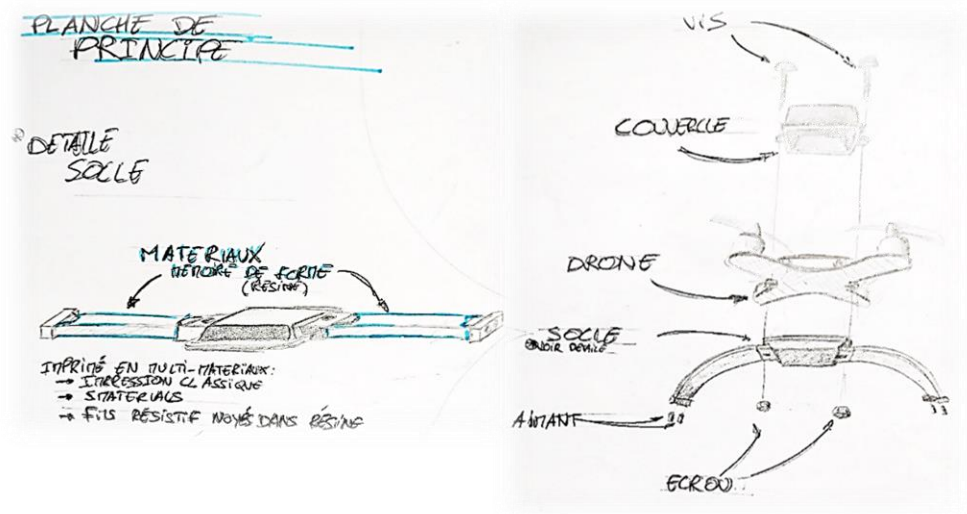 PLANCHE DE
PRINCIPE
DETAILLE
SOCLE
MATERIAUX
MEMOIRE DE FORME
(RESINE)
IMPRIMÉ EN MULTI-MATERIAUX:
→ IMPRESSION CLASSIQUE
→ SMATERIALS
→ FILS RÉSISTIF NOYÉS DANS RÉSINE
VIS
COUVERCLE
DRONE
SOCLE
VOIR DETAILE
AIMANT
ECROU